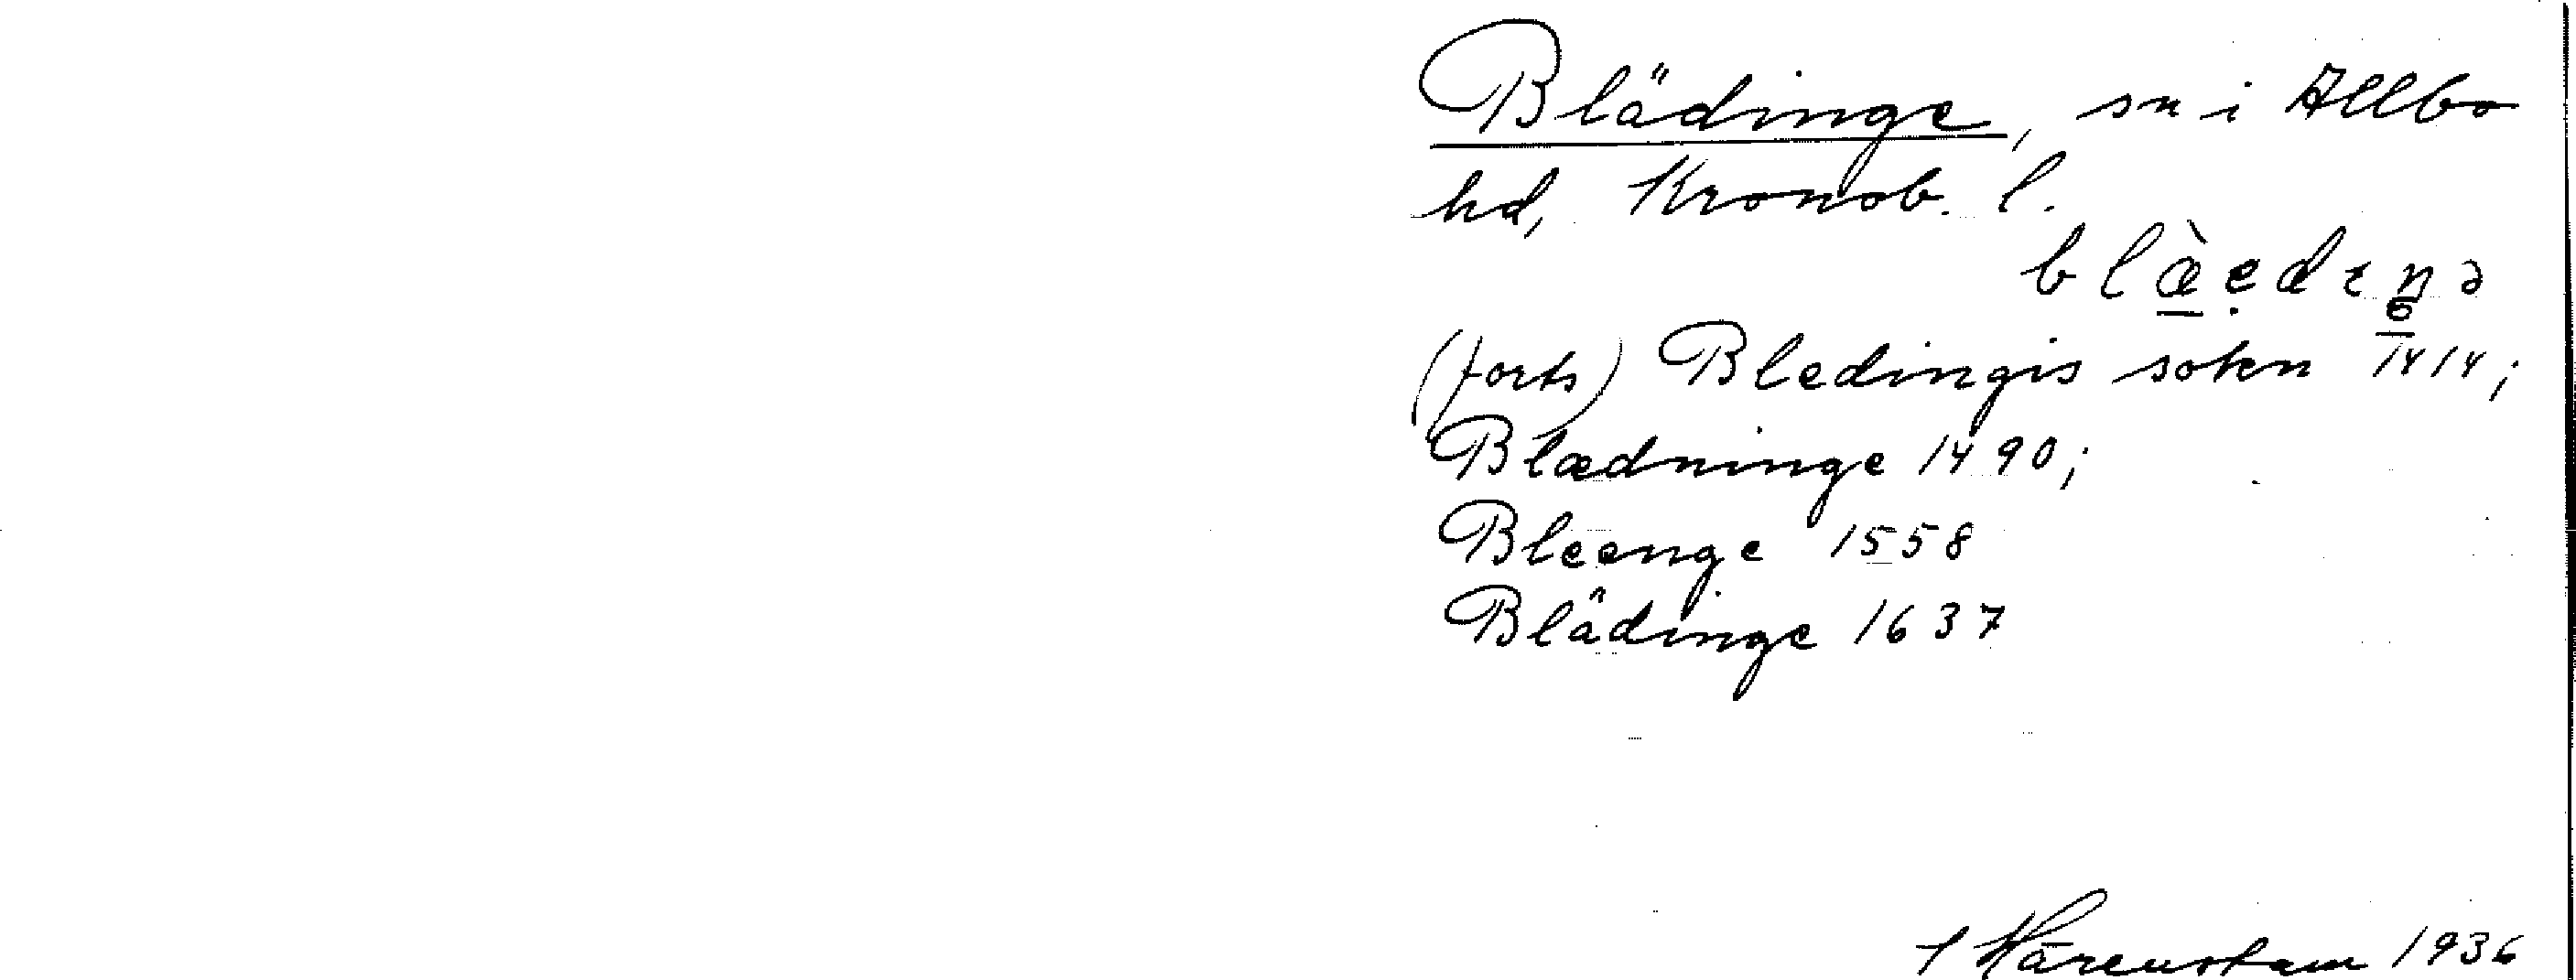 Blädinge, sn i Allbo
hd, Kronob. l.
blæ̀ẹdıŋə
6
(forts) Bledingis sokn 1414;
Blædninge 1490;
Bleenge 1558
Blädinge 1637
Härenstam 1936